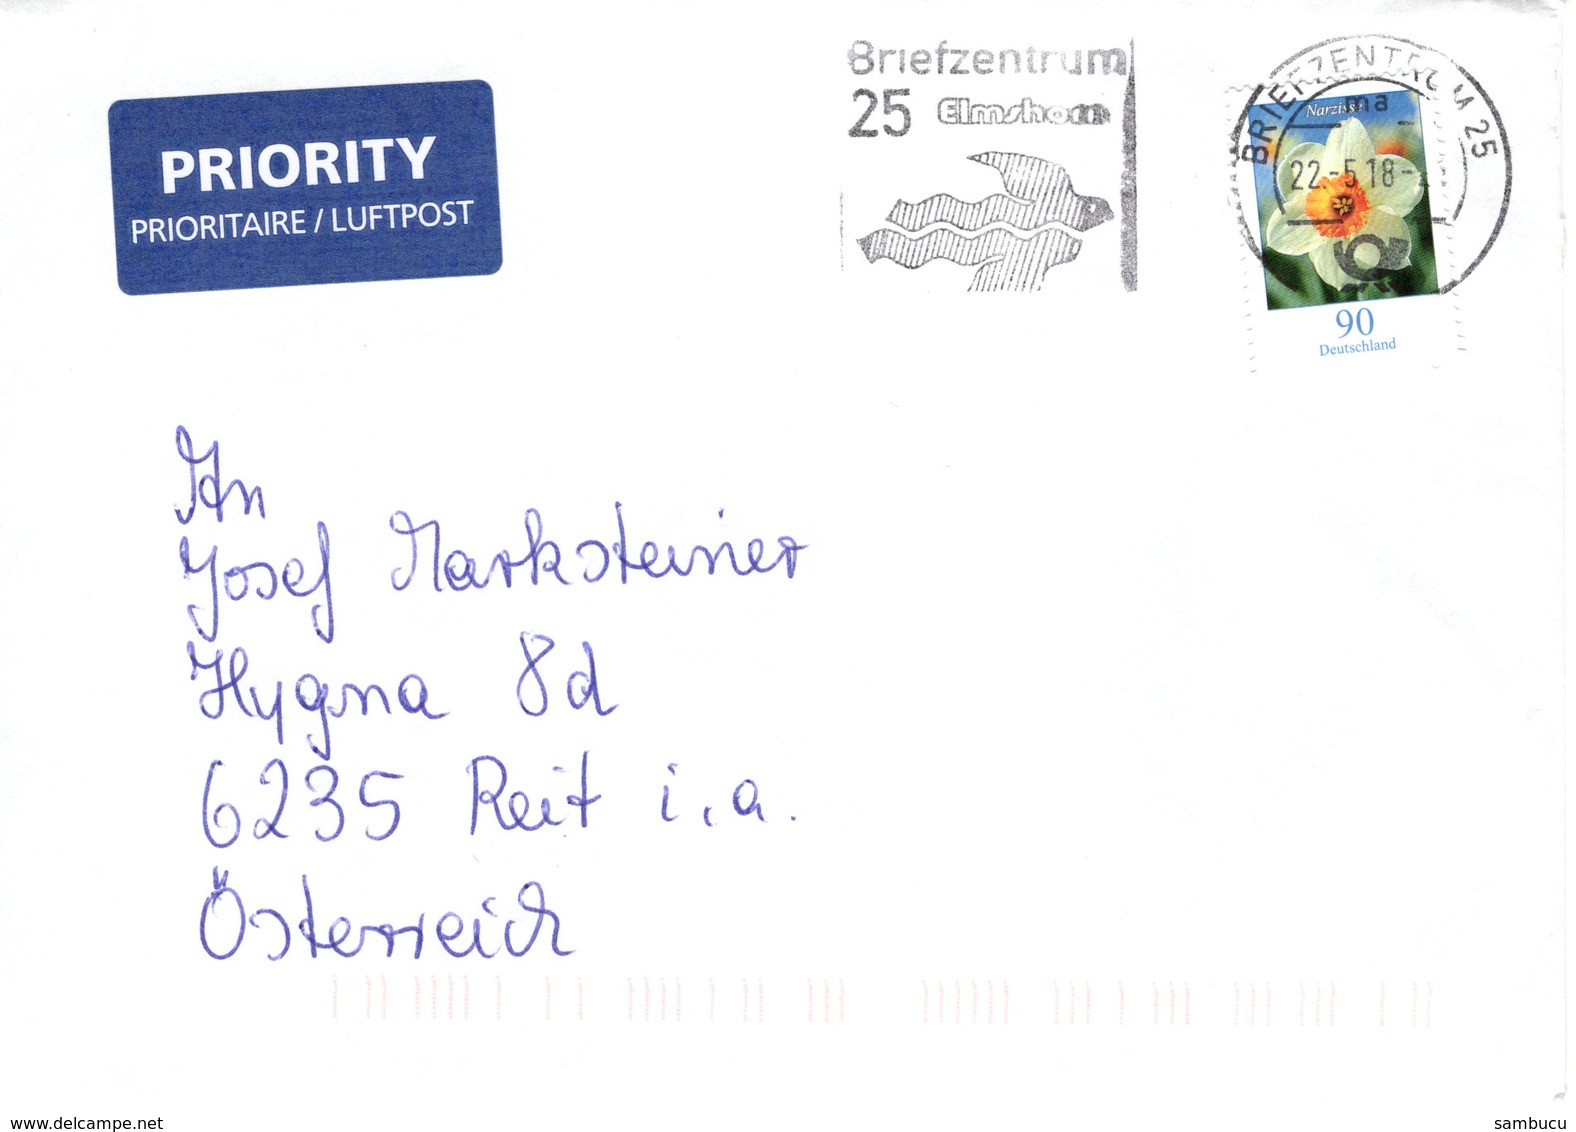 PRIORITY
PRIORITAIRE / LUFTPOST
Briefzentrum
25 Elmshorn
BRIEFZENTRUM 25
ma
22.-5.18-
Narzisse
90
Deutschland
An
Josef Marksteiner
Hygna 8d
6235 Reit i.a.
Österreich
www.delcampe.net
sambucu